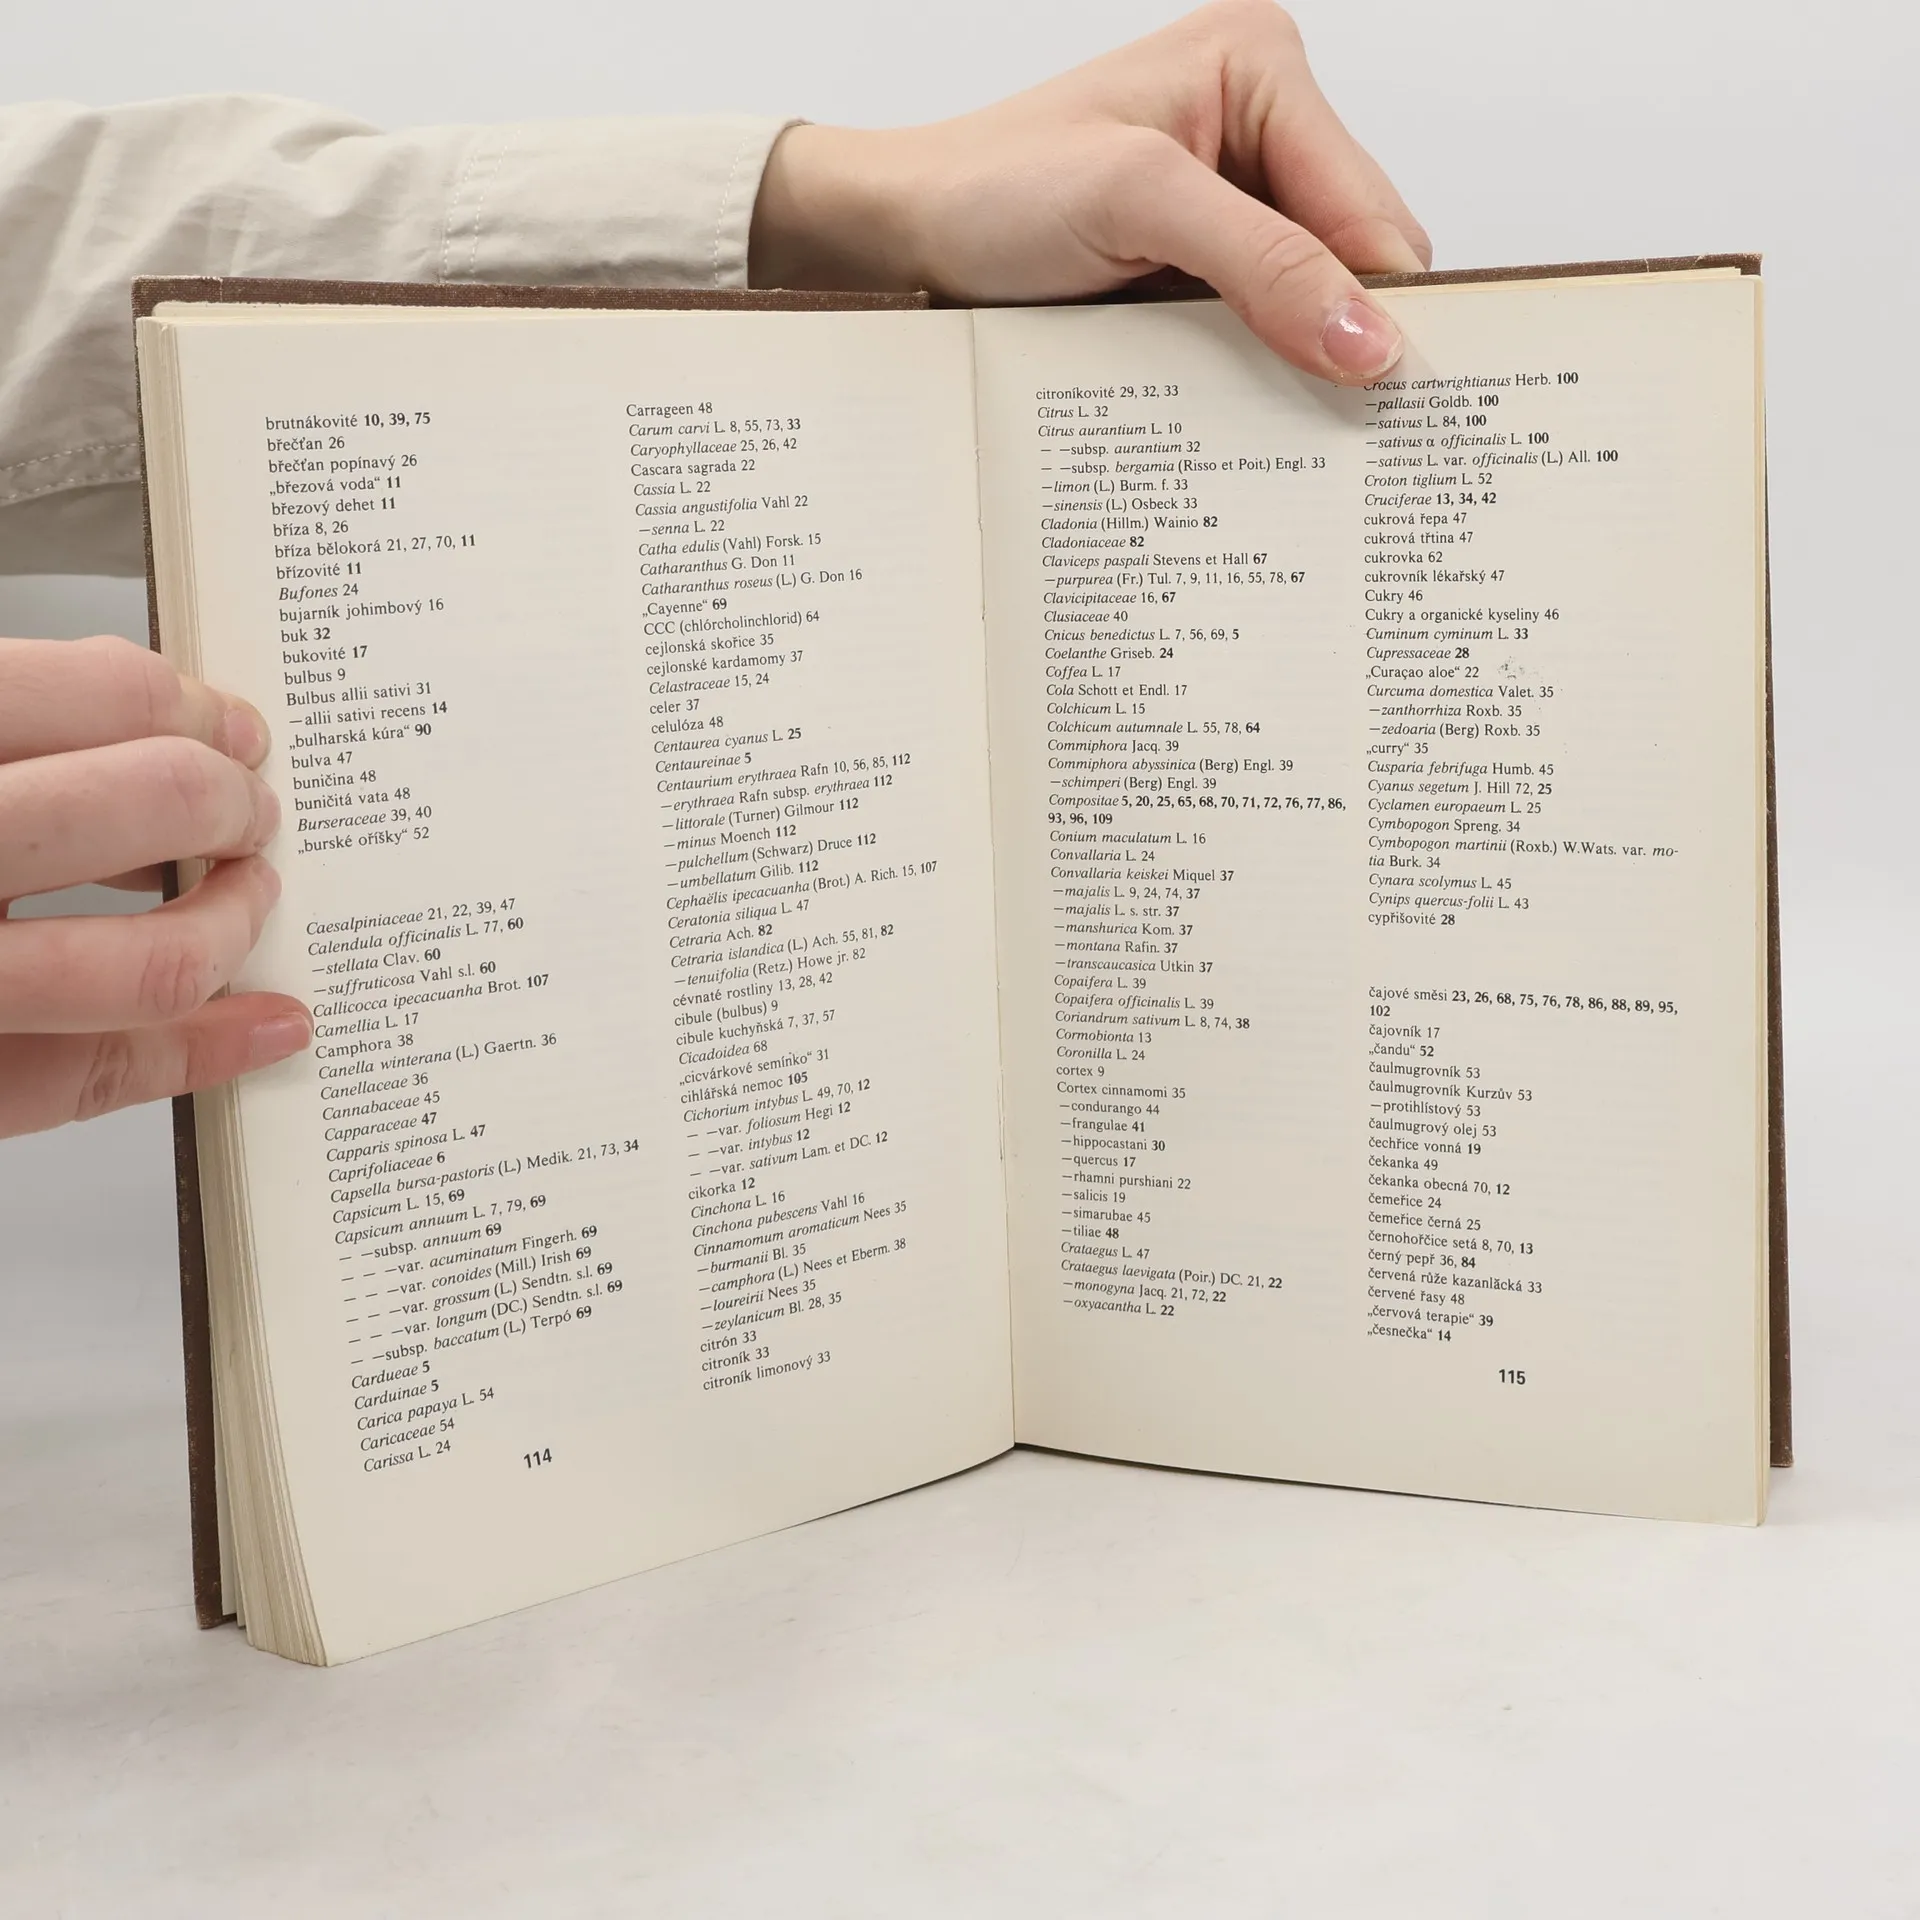 brutnákovité 10, 39, 75
břečťan 26
břečťan popínavý 26
„březová voda“ 11
březový dehet 11
bříza 8, 26
bříza bělokorá 21, 27, 70, 11
břízovité 11
Bufones 24
bujarník johimbový 16
buk 32
bukovité 17
bulbus 9
Bulbus allii sativi 31
—allii sativi recens 14
„bulharská kúra“ 90
bulva 47
buničina 48
buničitá vata 48
Burseraceae 39, 40
„burské oříšky“ 52
Caesalpiniaceae 21, 22, 39, 47
Calendula officinalis L. 77, 60
—stellata Clav. 60
—suffruticosa Vahl s.l. 60
Callicocca ipecacuanha Brot. 107
Camellia L. 17
Camphora 38
Canella winterana (L.) Gaertn. 36
Canellaceae 36
Cannabaceae 45
Capparaceae 47
Capparis spinosa L. 47
Caprifoliaceae 6
Capsella bursa-pastoris (L.) Medik. 21, 73, 34
Capsicum L. 15, 69
Capsicum annuum L. 7, 79, 69
— —subsp. annuum 69
— — —var. acuminatum Fingerh. 69
— — —var. conoides (Mill.) Irish 69
— — —var. grossum (L.) Sendtn. s.l. 69
— — —var. longum (DC.) Sendtn. s.l. 69
— —subsp. baccatum (L.) Terpó 69
Cardueae 5
Carduinae 5
Carica papaya L. 54
Caricaceae 54
Carissa L. 24
Carrageen 48
Carum carvi L. 8, 55, 73, 33
Caryophyllaceae 25, 26, 42
Cascara sagrada 22
Cassia L. 22
Cassia angustifolia Vahl 22
—senna L. 22
Catha edulis (Vahl) Forsk. 15
Catharanthus G. Don 11
Catharanthus roseus (L.) G. Don 16
„Cayenne“ 69
CCC (chlórcholinchlorid) 64
cejlonská skořice 35
cejlonské kardamomy 37
Celastraceae 15, 24
celer 37
celulóza 48
Centaurea cyanus L. 25
Centaureinae 5
Centaurium erythraea Rafn 10, 56, 85, 112
—erythraea Rafn subsp. erythraea 112
—littorale (Turner) Gilmour 112
—minus Moench 112
—pulchellum (Schwarz) Druce 112
—umbellatum Gilib. 112
Cephaëlis ipecacuanha (Brot.) A. Rich. 15, 107
Ceratonia siliqua L. 47
Cetraria Ach. 82
Cetraria islandica (L.) Ach. 55, 81, 82
—tenuifolia (Retz.) Howe jr. 82
cévnaté rostliny 13, 28, 42
cibule (bulbus) 9
cibule kuchyňská 7, 37, 57
Cicadoidea 68
„cicvárkové semínko“ 31
cihlářská nemoc 105
Cichorium intybus L. 49, 70, 12
— —var. foliosum Hegi 12
— —var. intybus 12
— —var. sativum Lam. et DC. 12
cikorka 12
Cinchona L. 16
Cinchona pubescens Vahl 16
Cinnamomum aromaticum Nees 35
—burmanii Bl. 35
—camphora (L.) Nees et Eberm. 38
—loureirii Nees 35
—zeylanicum Bl. 28, 35
citrón 33
citroník 33
citroník limonový 33
114
citroníkovité 29, 32, 33
Citrus L. 32
Citrus aurantium L. 10
— —subsp. aurantium 32
— —subsp. bergamia (Risso et Poit.) Engl. 33
—limon (L.) Burm. f. 33
—sinensis (L.) Osbeck 33
Cladonia (Hillm.) Wainio 82
Cladoniaceae 82
Claviceps paspali Stevens et Hall 67
—purpurea (Fr.) Tul. 7, 9, 11, 16, 55, 78, 67
Clavicipitaceae 16, 67
Clusiaceae 40
Cnicus benedictus L. 7, 56, 69, 5
Coelanthe Griseb. 24
Coffea L. 17
Cola Schott et Endl. 17
Colchicum L. 15
Colchicum autumnale L. 55, 78, 64
Commiphora Jacq. 39
Commiphora abyssinica (Berg) Engl. 39
—schimperi (Berg) Engl. 39
Compositae 5, 20, 25, 65, 68, 70, 71, 72, 76, 77, 86,
93, 96, 109
Conium maculatum L. 16
Convallaria L. 24
Convallaria keiskei Miquel 37
—majalis L. 9, 24, 74, 37
—majalis L. s. str. 37
—manshurica Kom. 37
—montana Rafin. 37
—transcaucasica Utkin 37
Copaifera L. 39
Copaifera officinalis L. 39
Coriandrum sativum L. 8, 74, 38
Cormobionta 13
Coronilla L. 24
cortex 9
Cortex cinnamomi 35
—condurango 44
—frangulae 41
—hippocastani 30
—quercus 17
—rhamni purshiani 22
—salicis 19
—simarubae 45
—tiliae 48
Crataegus L. 47
Crataegus laevigata (Poir.) DC. 21, 22
—monogyna Jacq. 21, 72, 22
—oxyacantha L. 22
Crocus cartwrightianus Herb. 100
—pallasii Goldb. 100
—sativus L. 84, 100
—sativus α officinalis L. 100
—sativus L. var. officinalis (L.) All. 100
Croton tiglium L. 52
Cruciferae 13, 34, 42
cukrová řepa 47
cukrová třtina 47
cukrovka 62
cukrovník lékařský 47
Cukry 46
Cukry a organické kyseliny 46
Cuminum cyminum L. 33
Cupressaceae 28
„Curaçao aloe“ 22
Curcuma domestica Valet. 35
—zanthorrhiza Roxb. 35
—zedoaria (Berg) Roxb. 35
„curry“ 35
Cusparia febrifuga Humb. 45
Cyanus segetum J. Hill 72, 25
Cyclamen europaeum L. 25
Cymbopogon Spreng. 34
Cymbopogon martinii (Roxb.) W.Wats. var. mo-
tia Burk. 34
Cynara scolymus L. 45
Cynips quercus-folii L. 43
cypřišovité 28
čajové směsi 23, 26, 68, 75, 76, 78, 86, 88, 89, 95,
102
čajovník 17
„čandu“ 52
čaulmugrovník 53
čaulmugrovník Kurzův 53
—protihlístový 53
čaulmugrový olej 53
čechřice vonná 19
čekanka 49
čekanka obecná 70, 12
čemeřice 24
čemeřice černá 25
černohořčice setá 8, 70, 13
černý pepř 36, 84
červená růže kazanlăcká 33
červené řasy 48
„červová terapie“ 39
„česnečka“ 14
115